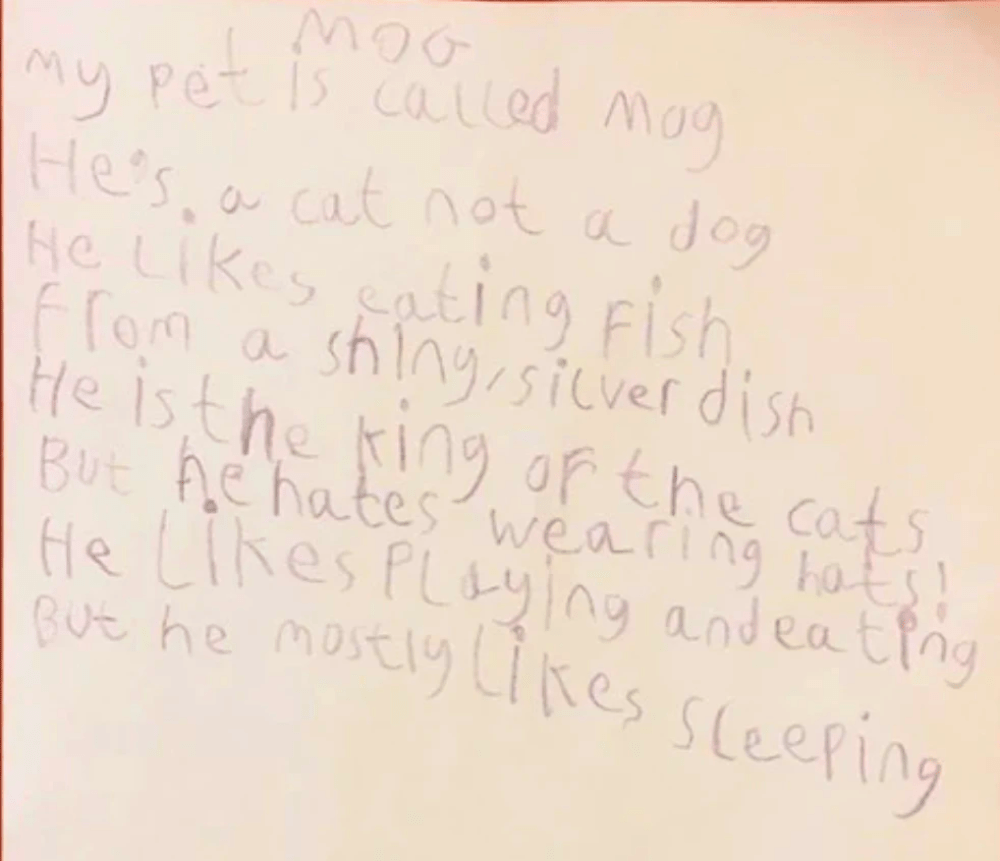 MOG
My pet is called Mog
He's a cat not a dog
He Likes eating Fish
From a shiny, silver dish
He is the king of the cats
But he hates wearing hats!
He Likes Playing and eating
But he mostly Likes Sleeping